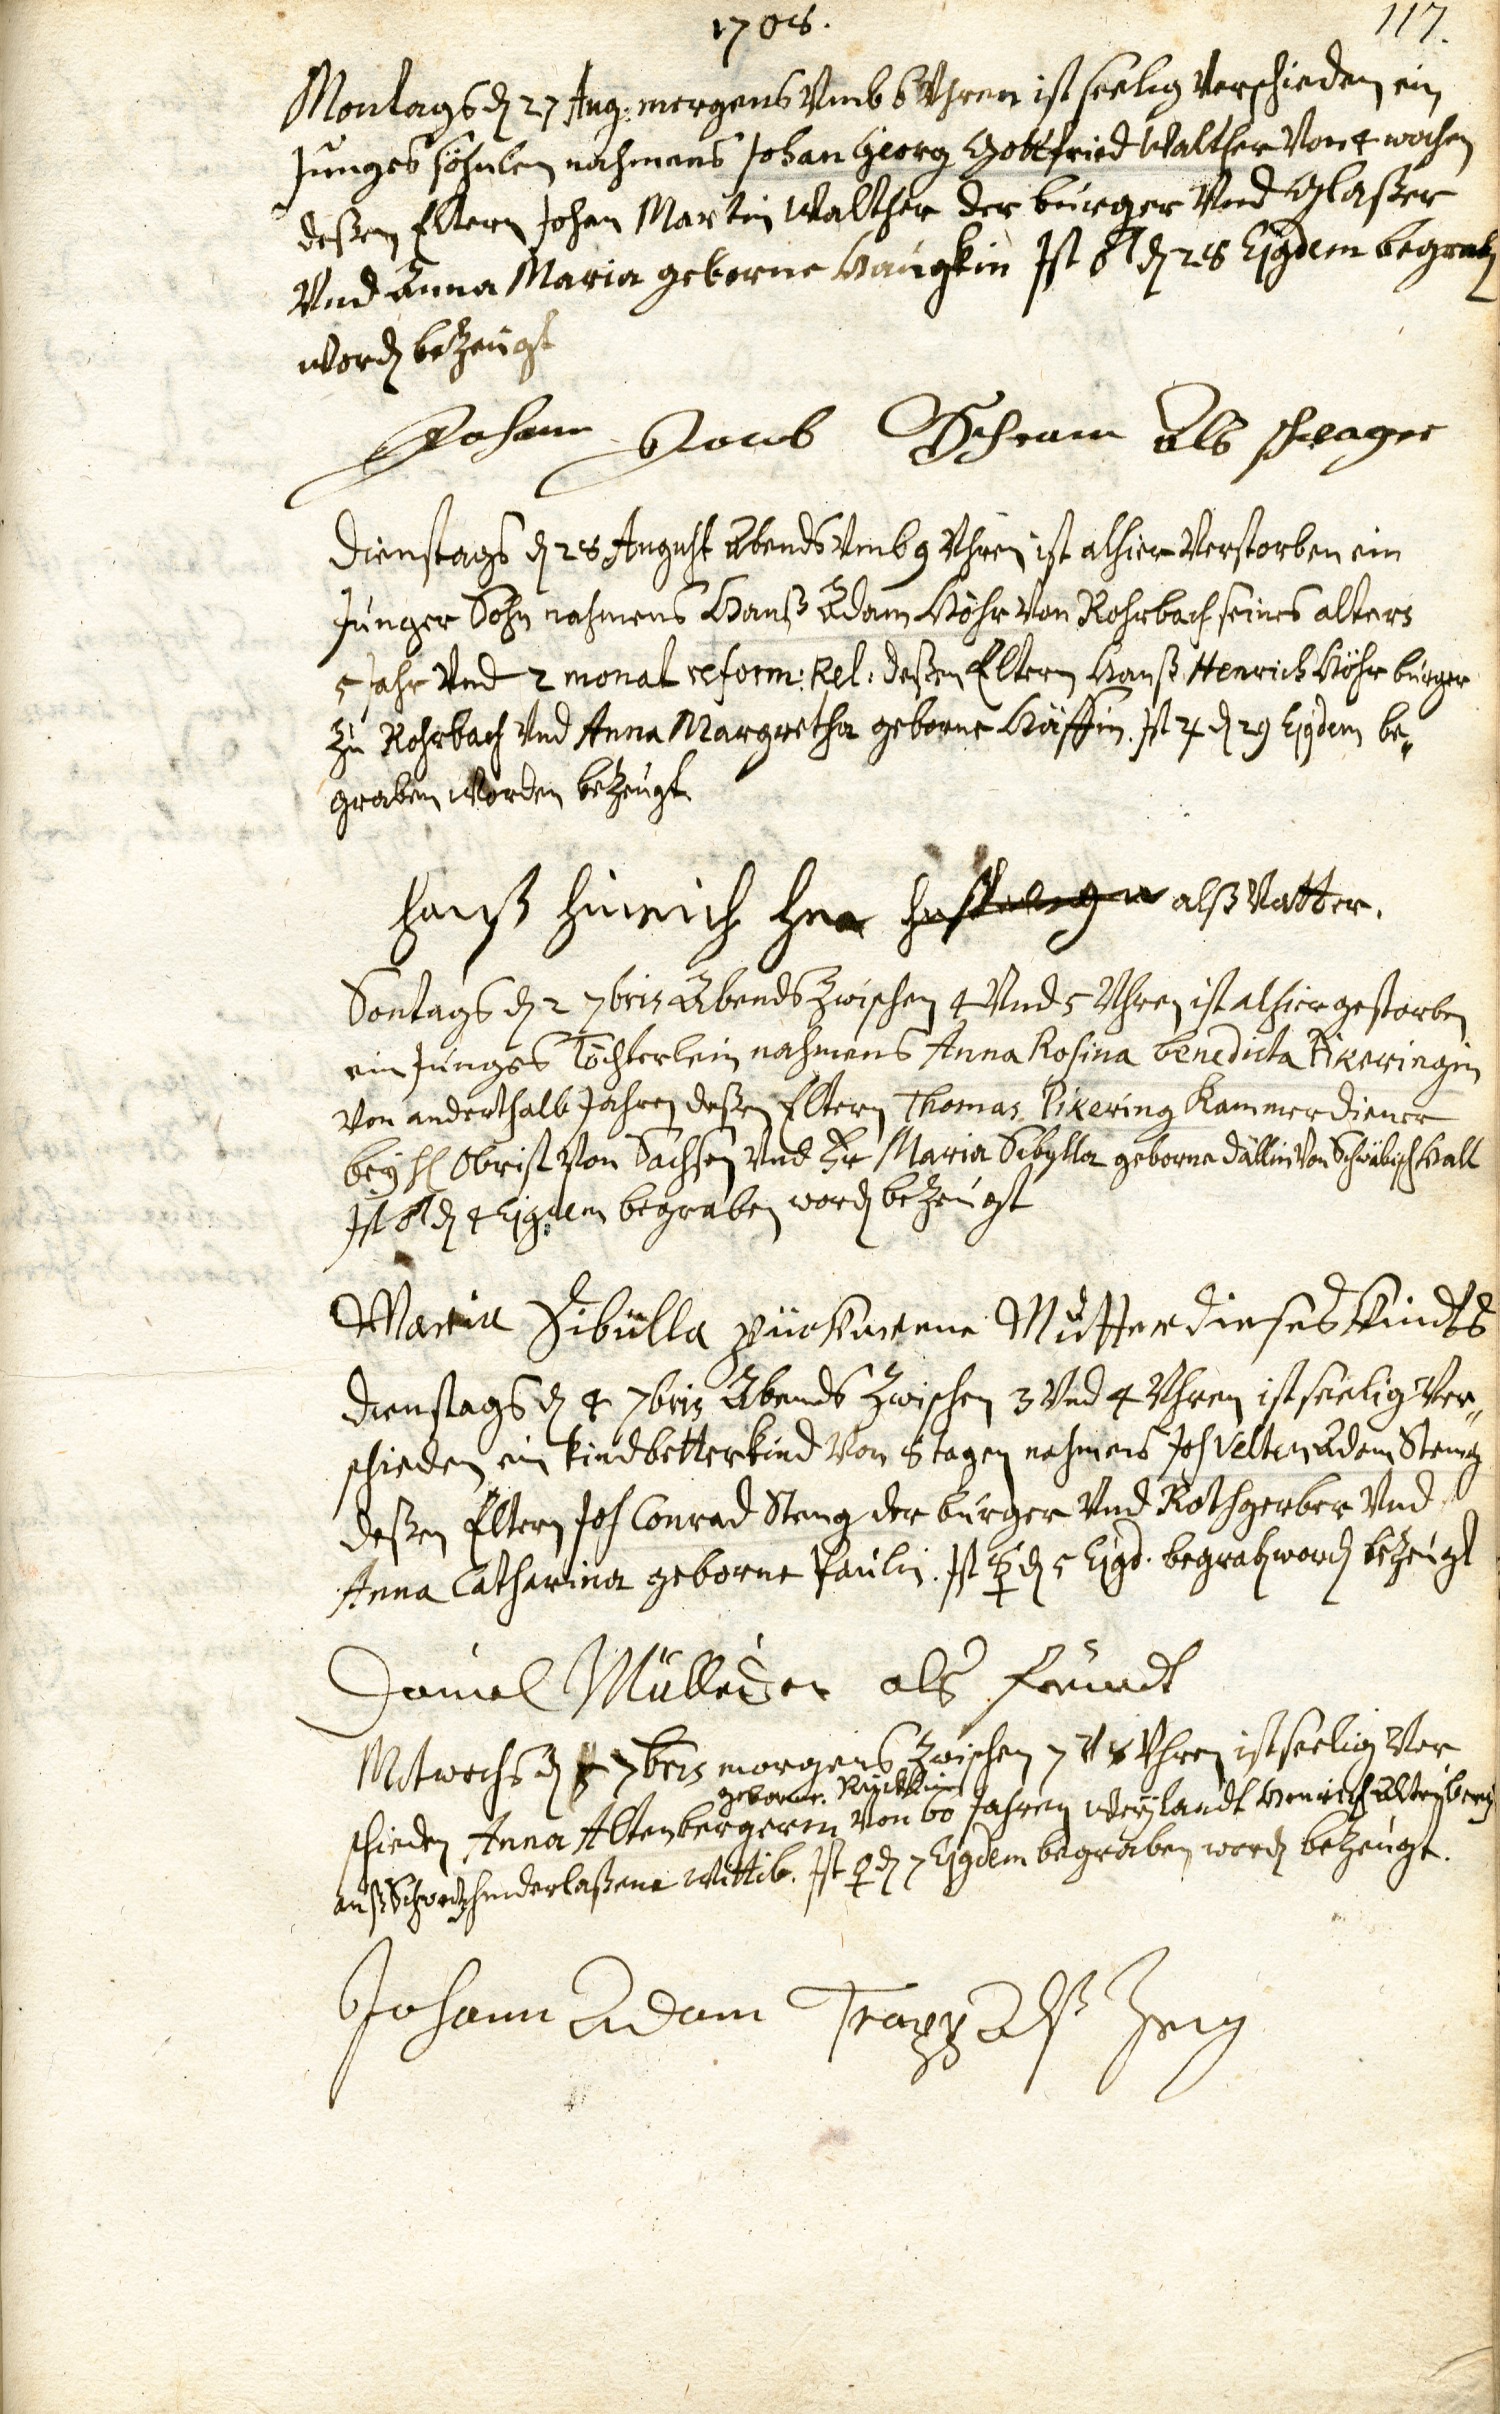 1708.
117.
Montags d 27 Aug: morgens Vmb 6 Vhren ist seelig verschieden ein
Junges söhnlen nahmens Johan Georg Gottfried Walther Von 4 wochen
deßen Eltern Johan Martin Walther der burger Vnd Glaßer
Vnd Anna Maria geborne Haugkin Ist ♂ d 28 Ejgdem begrab
word bezeugt
Johann Jacob Schram Als schwager
Dienstags d 28 August Abends Vmb 9 Vhren ist alhier Verstorben ein
Junger Sohn nahmens Hanß Adam Höhr Von Rohrbach seines alters
5 Jahr Vnd 2 monat reform: Rel: deßen Eltern Hanß Henrich Höhr burger
zu Rohrbach Vnd Anna Margretha geborne Häffin. Ist ♃ d 29 Ejgdem be„
graben worden bezeugt
hanß hinrich alß Vatter.
Sontags d 2 7bris Abends Zwischen 4 Vnd 5 Vhren ist alhier gestorben
ein Junges Töchterlein nahmens Anna Rosina benedicta Pikeringin
Von anderthalb Jahren deßen Eltern Thomas Pikering Kammerdiener
bey H Obrist Von Sachsen Vnd Fr Maria Sibylla geborne Dällin Von Schwäbisch Hall
Ist ♂ d 4 Ejgdem begraben word bezeugt
Maria Sibülla Mutter dieses Kindts
Dienstags d 4 7bris Abends Zwischen 3 Vnd 4 Vhren ist seelig Ver„
schieden ein kindbetterkind Von 8 tagen nahmens Joh Velten Adam Steng
deßen Eltern Joh Conrad Steng der burger Vnd Rothgerber Vnd
Anna Catharina geborne Paulin. Ist ☿ d 5 Ejgd. begrab word bezeugt
Daniel Mülleder als freündt
Mitwochs d 5 7bris morgens Zwischen 7 V 8 Vhren ist seelig Ver
geborne Rücklin
schieden Anna Altenbergerin Von 60 Jahren Weylandt Henrich Altenberg
auß Schweitz hinderlaßene Wittib. Ist ♀ d 7 Ejgdem begraben word bezeugt.
Johann Adam Trapp Alß Zeug